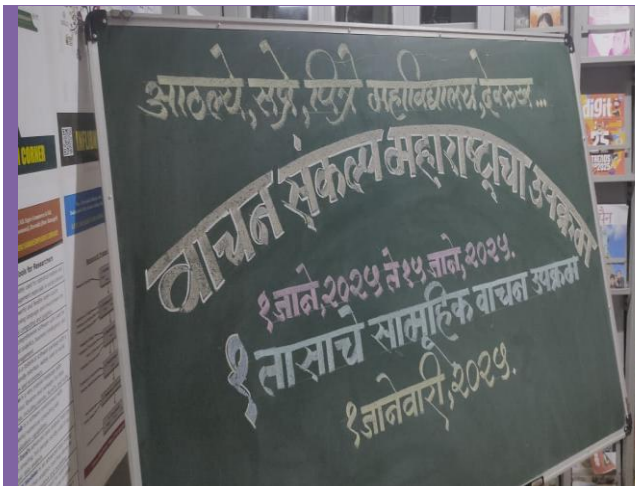 आठल्ये, सप्रे, पित्रे महाविद्यालय, देवरुख...
वाचन संकल्प महाराष्ट्राचा उपक्रम
१ जाने, २०२५ ते १५ जाने, २०२५.
१ तासाचे सामूहिक वाचन उपक्रम
१ जानेवारी, २०२५.
CORNER
digit